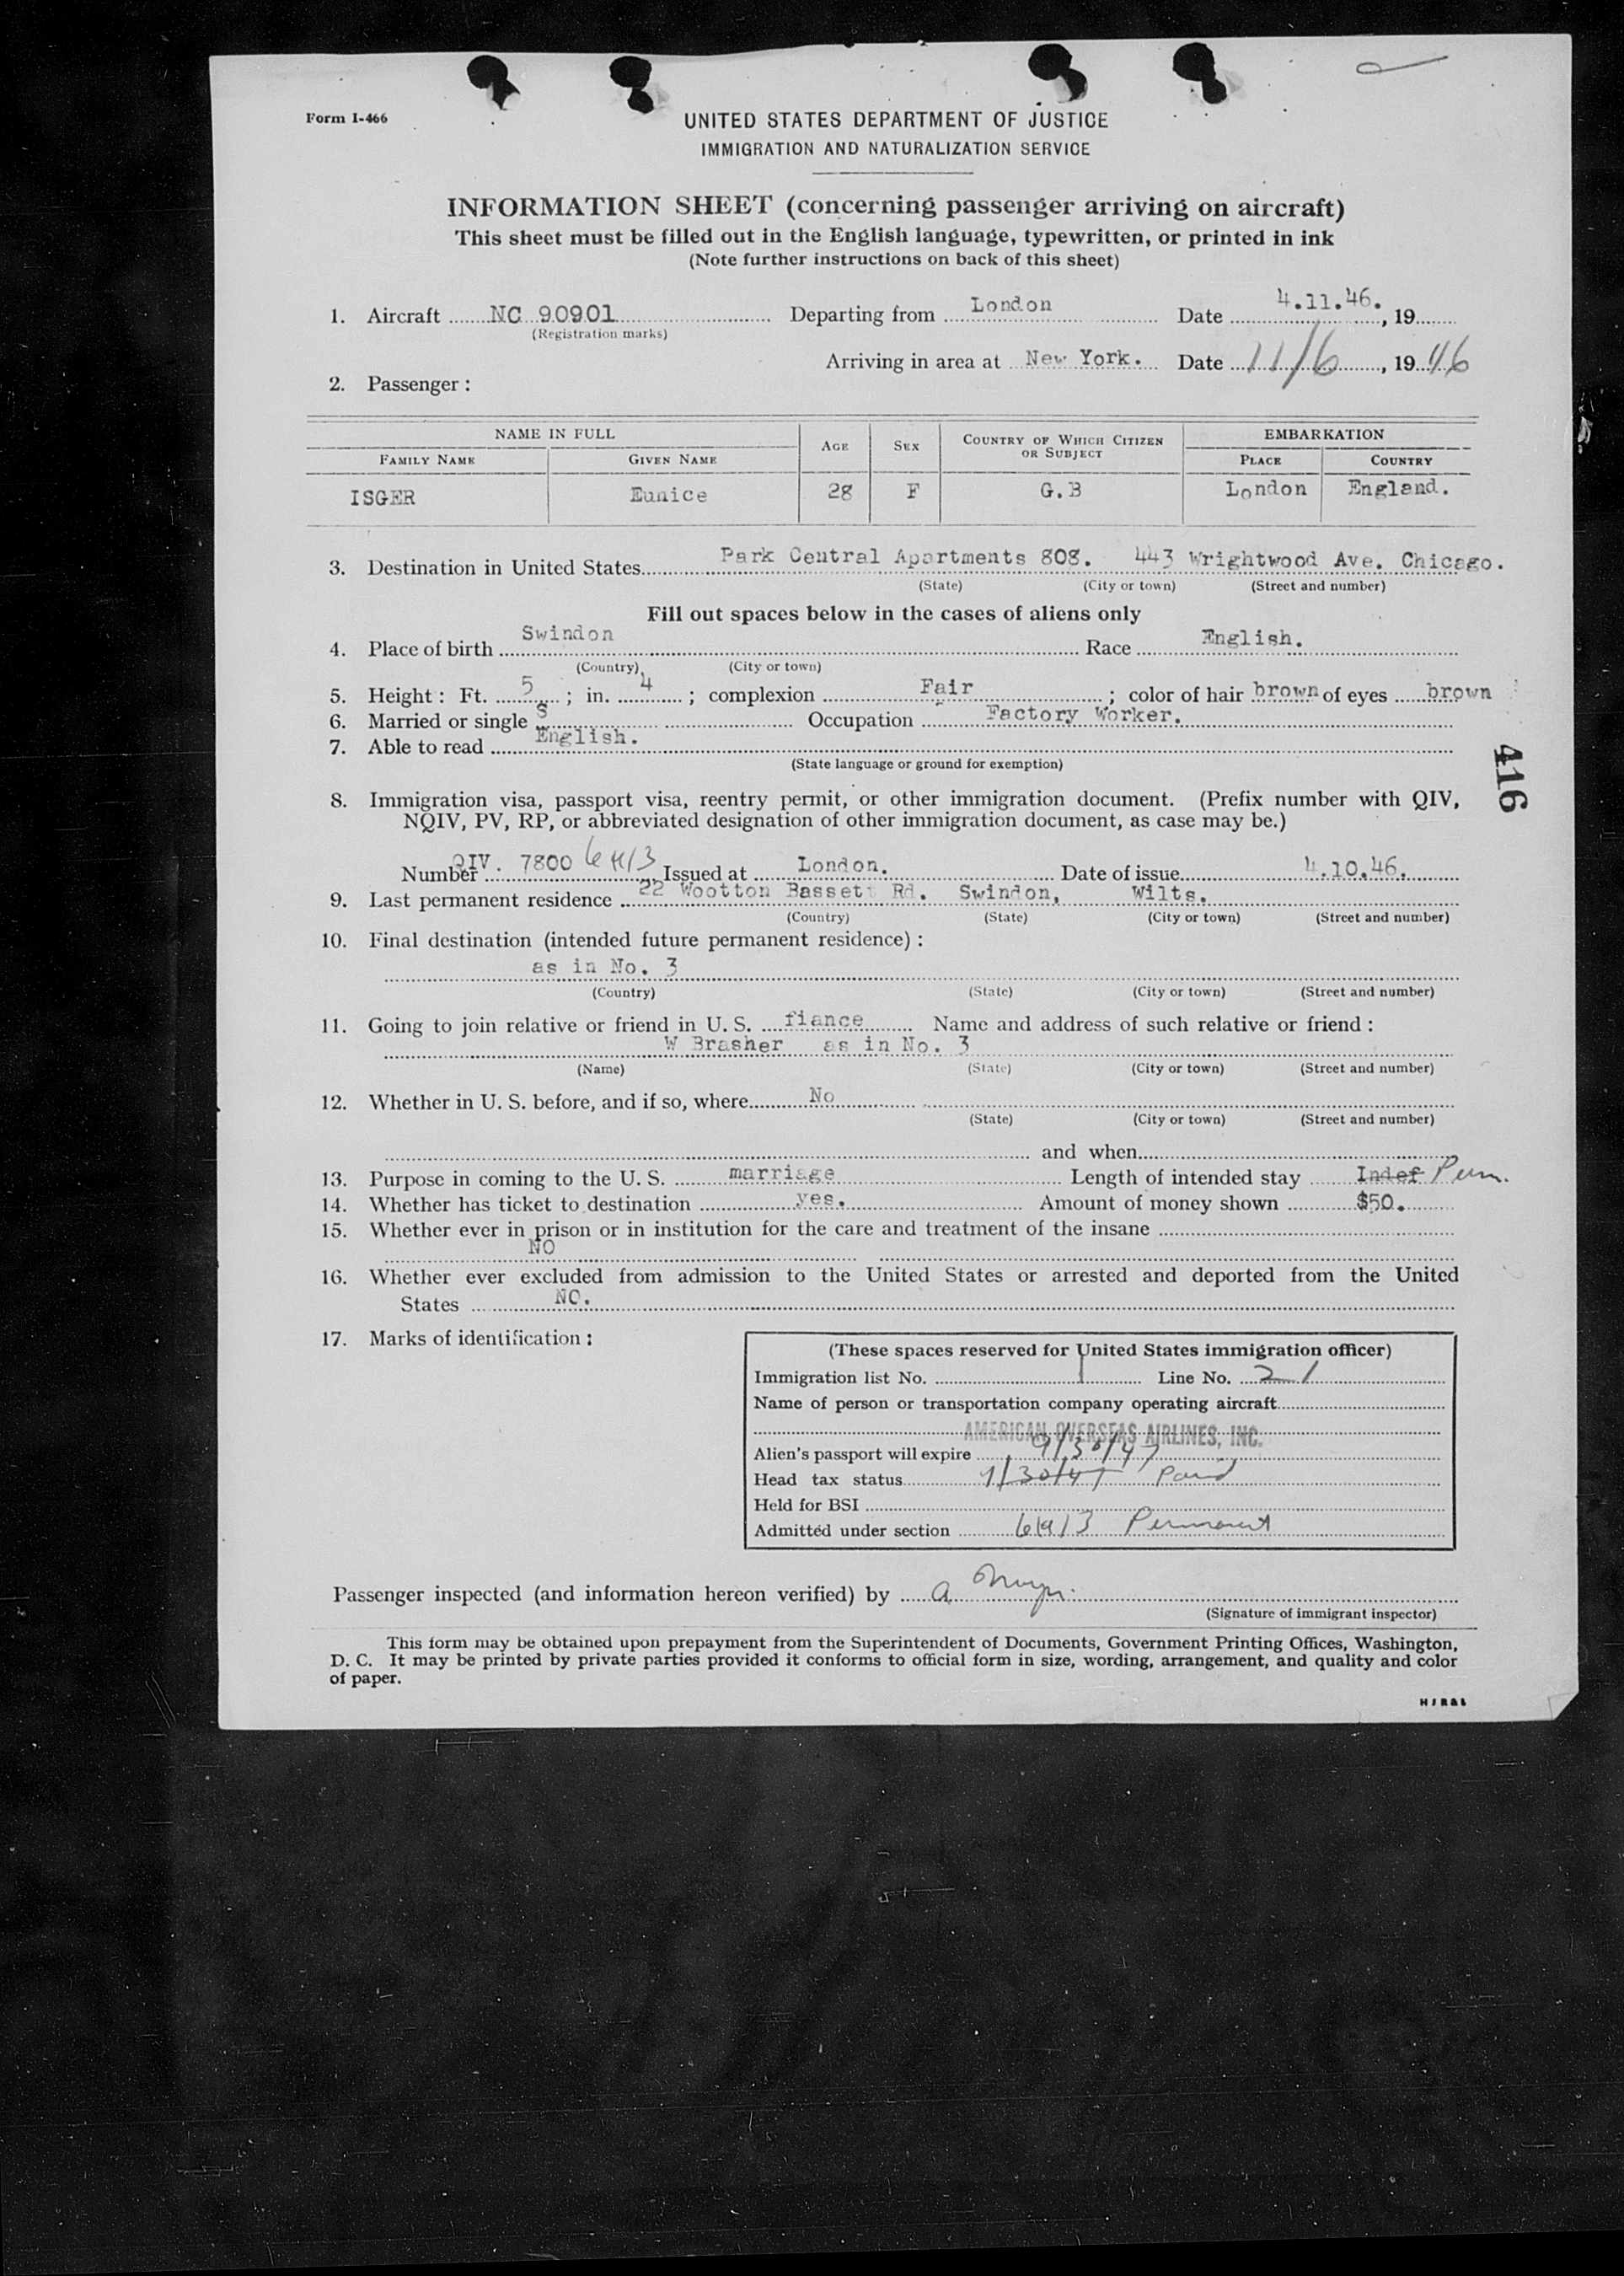 Form I-466
UNITED STATES DEPARTMENT OF JUSTICE
IMMIGRATION AND NATURALIZATION SERVICE
INFORMATION SHEET (concerning passenger arriving on aircraft)
This sheet must be filled out in the English language, typewritten, or printed in ink
(Note further instructions on back of this sheet)
1. Aircraft NC 90901 Departing from London Date 4.11.46., 19
(Registration marks)
Arriving in area at New York. Date 11/6, 1946
2. Passenger:
NAME IN FULL AGE SEX COUNTRY OF WHICH CITIZEN OR SUBJECT EMBARKATION
FAMILY NAME GIVEN NAME PLACE COUNTRY
ISGER Eunice 28 F G.B London England.
3. Destination in United States Park Central Apartments 808. 443 Wrightwood Ave. Chicago.
(State) (City or town) (Street and number)
Fill out spaces below in the cases of aliens only
4. Place of birth Swindon Race English.
(Country) (City or town)
5. Height: Ft. 5; in. 4; complexion Fair; color of hair brown of eyes brown
6. Married or single S Occupation Factory Worker.
7. Able to read English.
(State language or ground for exemption)
416
8. Immigration visa, passport visa, reentry permit, or other immigration document. (Prefix number with QIV,
NQIV, PV, RP, or abbreviated designation of other immigration document, as case may be.)
Number QIV. 7800 Issued at London. Date of issue 4.10.46.
9. Last permanent residence 22 Wootton Bassett Rd. Swindon, Wilts.
(Country) (State) (City or town) (Street and number)
10. Final destination (intended future permanent residence):
as in No. 3
(Country) (State) (City or town) (Street and number)
11. Going to join relative or friend in U. S. fiance Name and address of such relative or friend:
W Brasher as in No. 3
(Name) (State) (City or town) (Street and number)
12. Whether in U. S. before, and if so, where No
(State) (City or town) (Street and number)
and when
13. Purpose in coming to the U. S. marriage Length of intended stay Indef Perm.
14. Whether has ticket to destination yes. Amount of money shown $50.
15. Whether ever in prison or in institution for the care and treatment of the insane
NO
16. Whether ever excluded from admission to the United States or arrested and deported from the United
States NO.
17. Marks of identification:
(These spaces reserved for United States immigration officer)
Immigration list No. 1 Line No. 21
Name of person or transportation company operating aircraft
AMERICAN OVERSEAS AIRLINES, INC.
Alien's passport will expire 9/30/47
Head tax status 9/30/47 Paid
Held for BSI
Admitted under section Permanent
Passenger inspected (and information hereon verified) by A
(Signature of immigrant inspector)
This form may be obtained upon prepayment from the Superintendent of Documents, Government Printing Offices, Washington,
D. C. It may be printed by private parties provided it conforms to official form in size, wording, arrangement, and quality and color
of paper.